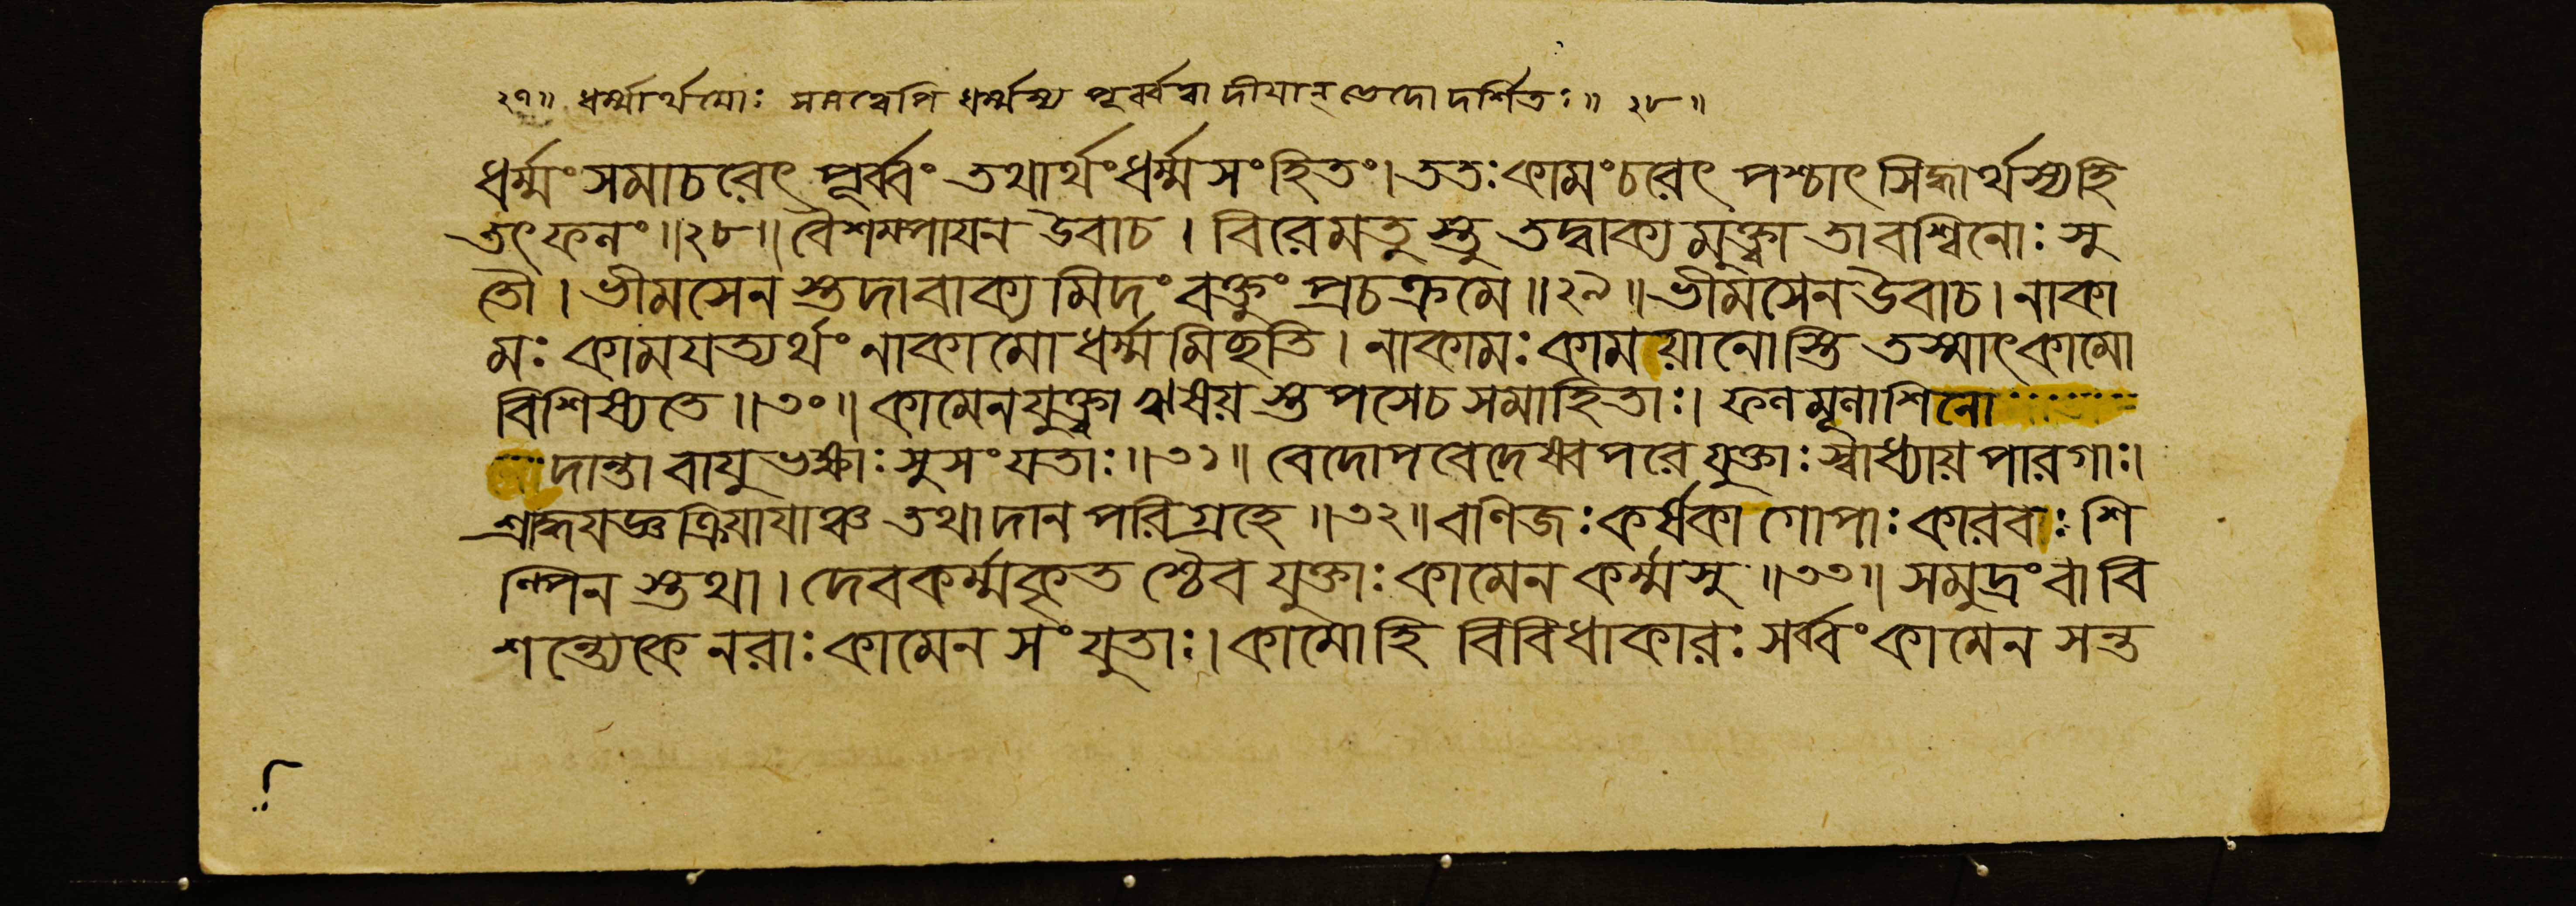 ২৭॥ ধর্ম্মার্থয়োঃ সমত্বেপি ধর্ম্মস্য পূর্ব্বত্বা দীযান্ ভেদো দর্শিতঃ॥ ২৮॥
ধর্ম্মং সমাচরেৎ পূর্ব্বং তথার্থং ধর্ম্মসংহিতং। ততঃ কামং চরেৎ পশ্চাৎ সিদ্ধার্থস্য হি
তৎ ফলং॥২৮॥ বৈশম্পাযন উবাচ। বিরেমতু স্তু তদ্বাক্য মুক্ত্বা তাবশ্বিনোঃ সু
তৌ। ভীমসেন স্তদা বাক্য মিদং বক্তুং প্রচক্রমে॥২৯॥ ভীমসেন উবাচ। নাকা
মঃ কামযত্যর্থং নাকামো ধর্ম্ম মিছতি। নাকামঃ কাময়ানোস্তি তস্মাৎ কামো
বিশিষ্যতে॥৩০॥ কামেন যুক্ত্বা ঋষয় স্তপসেচ সমাহিতাঃ। ফলমূলাশিনো
দান্তা বাযুভক্ষাঃ সুসংযতাঃ॥৩১॥ বেদোপবেদেষ্বপরে যুক্তাঃ স্বাধ্যায় পারগাঃ।
শ্রাদ্ধযজ্ঞক্রিয়াযাঞ্চ তথা দান পরিগ্রহে॥৩২॥ বণিজঃ কর্ষকা গোপাঃ কারবঃ শি
ল্পিন স্তথা। দেবকর্ম্মকৃত শ্চৈব যুক্তাঃ কামেন কর্ম্মসু॥৩৩॥ সমুদ্রং বা বি
শন্ত্যেকে নরাঃ কামেন সংযুতাঃ। কামো হি বিবিধাকারঃ সর্ব্বং কামেন সন্ত